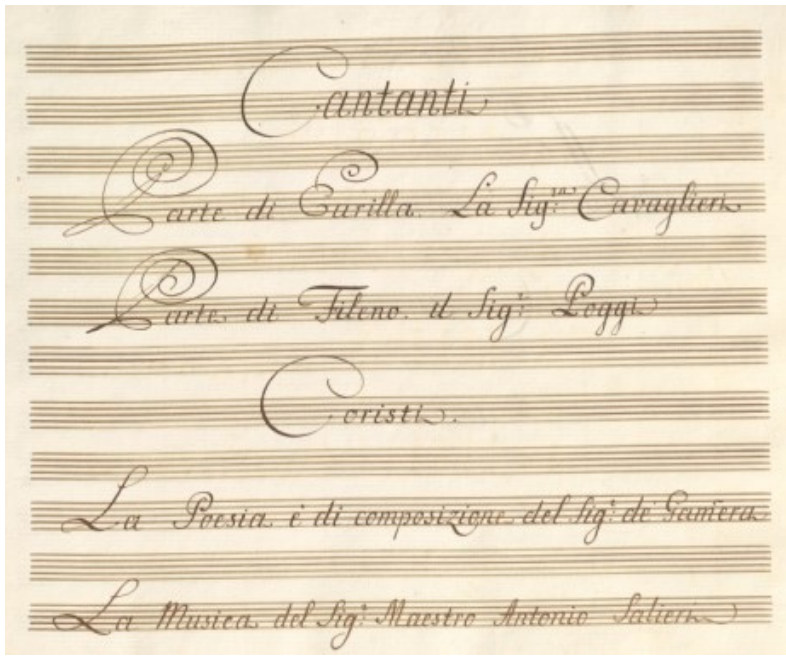 Cantanti
Parte di Eurilla. La Sig:ra Cavaglieri
Parte di Fileno. il Sig:r Poggi
Coristi.
La Poesia è di composizione del Sig:r de Gamera
La Musica del Sig:r Maestro Antonio Salieri